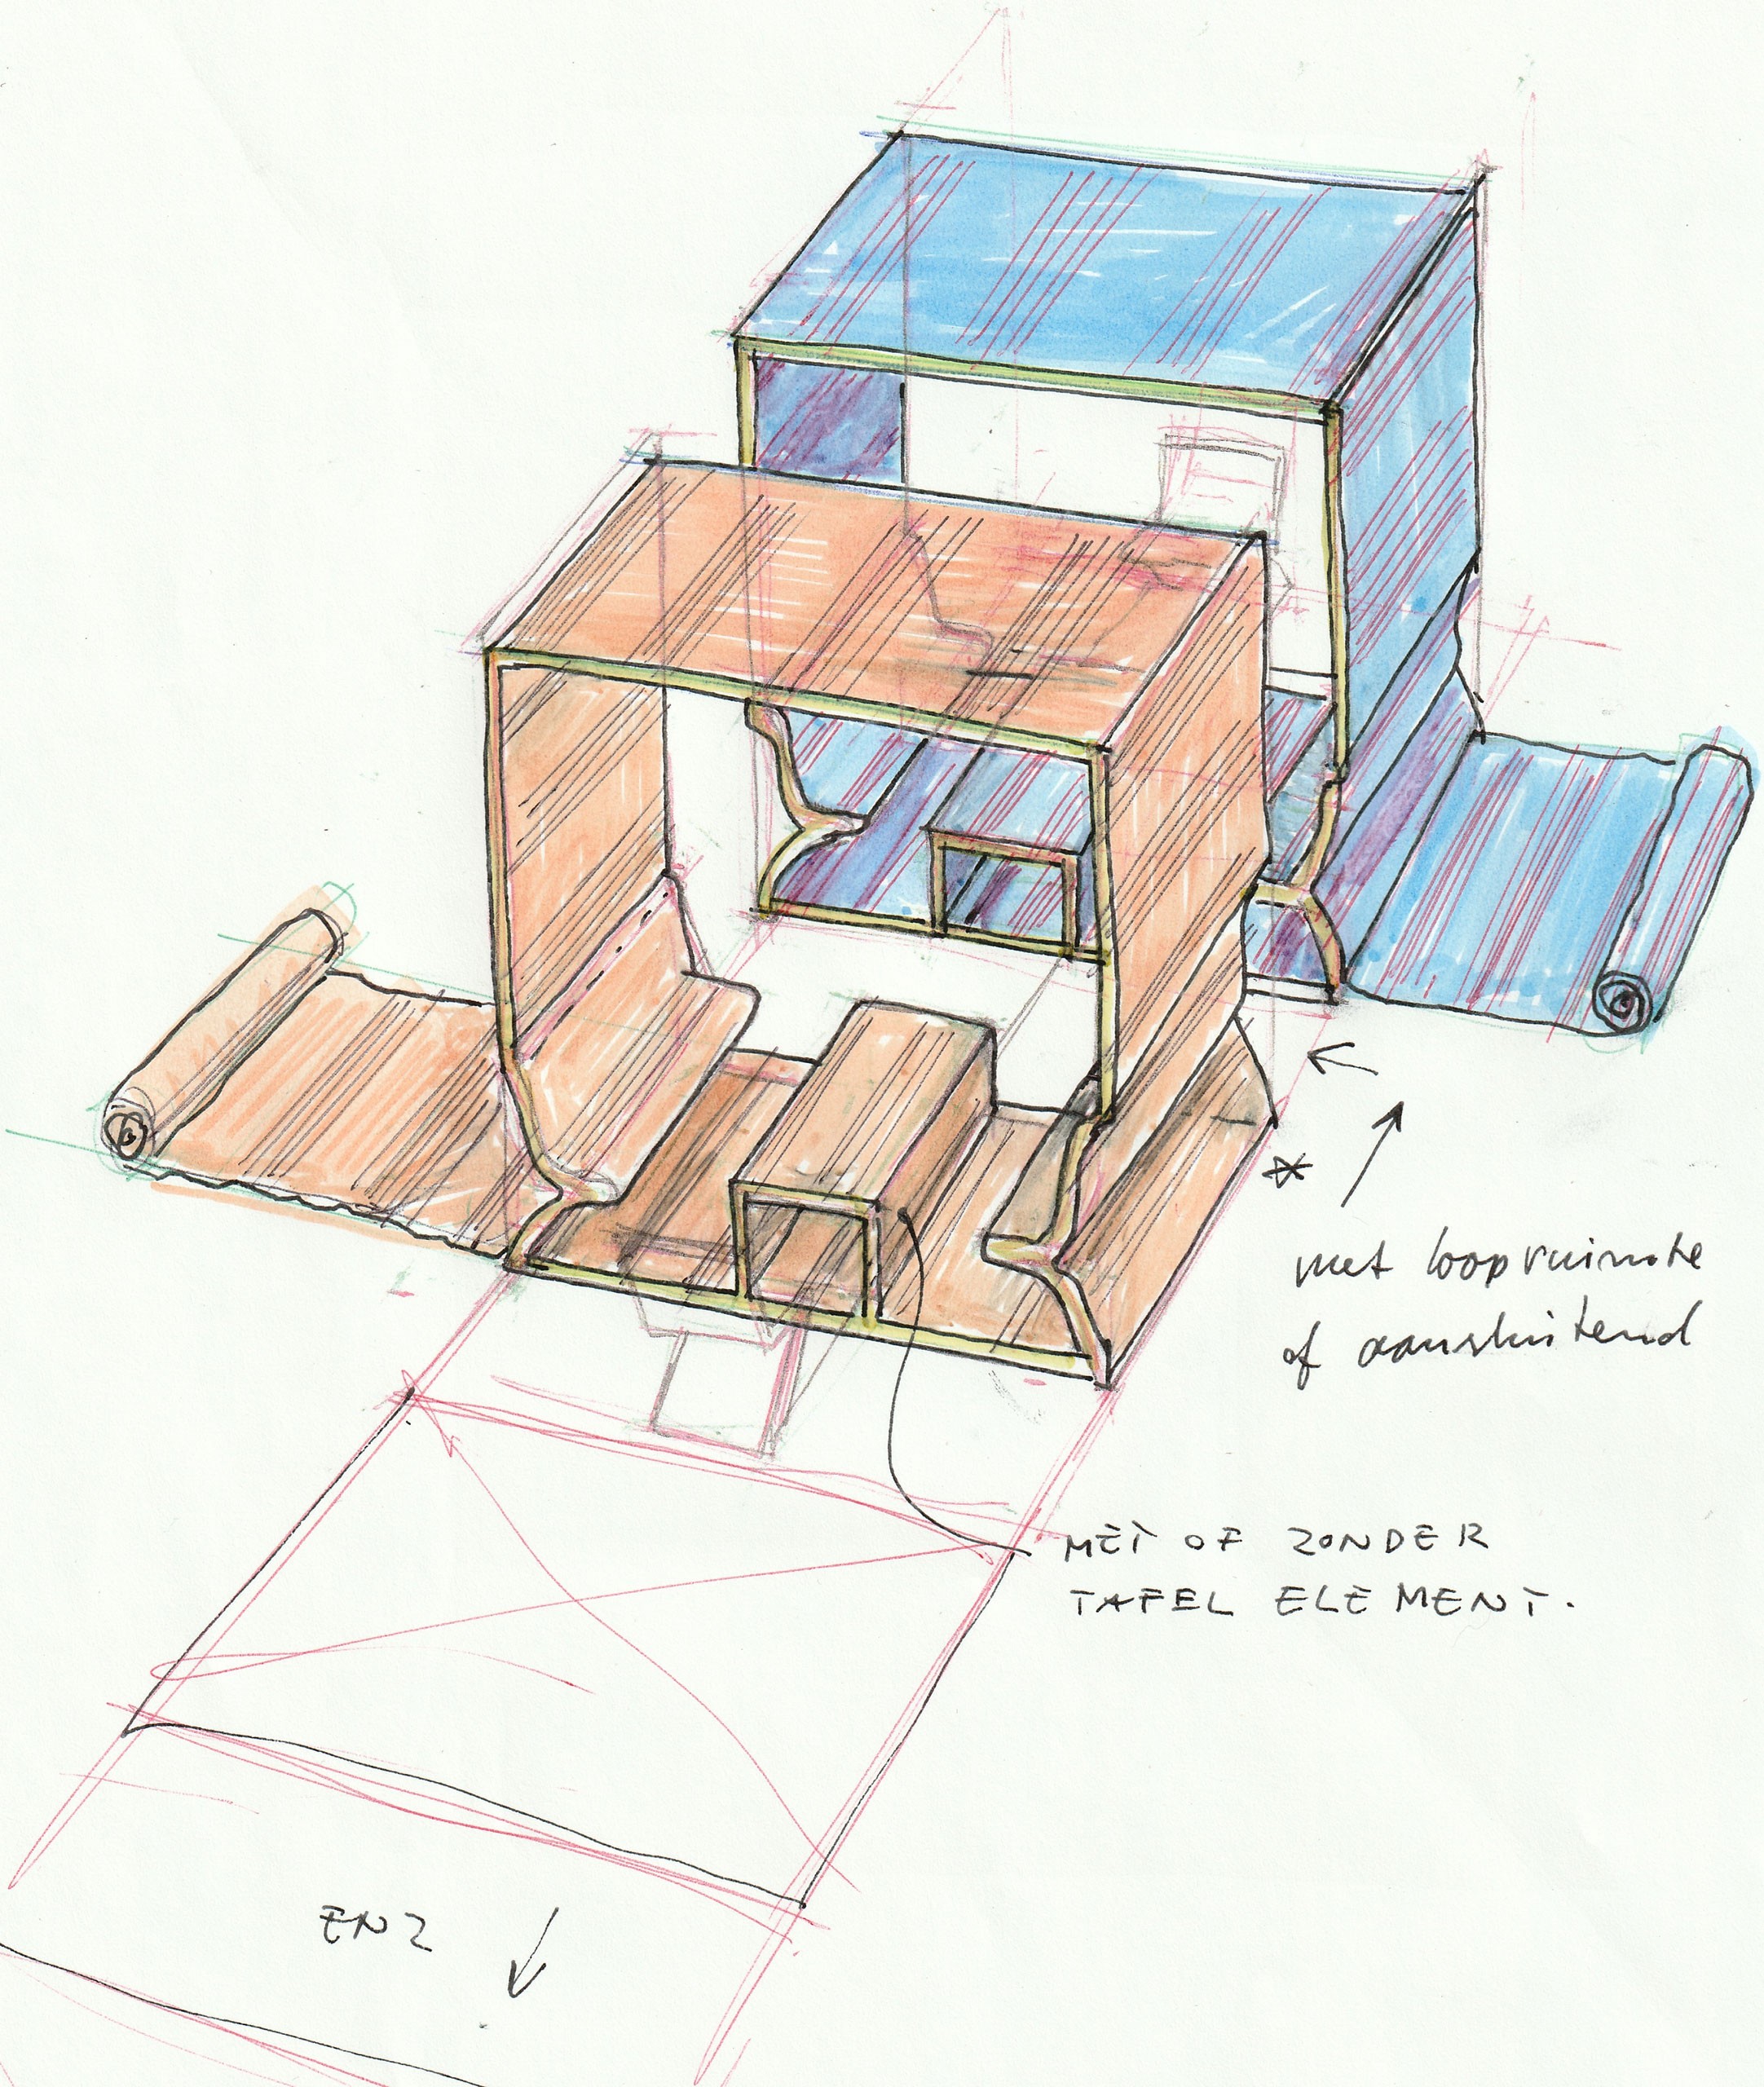 *
met loopruimte
of aansluitend
MET OF ZONDER
TAFEL ELEMENT.
ENZ